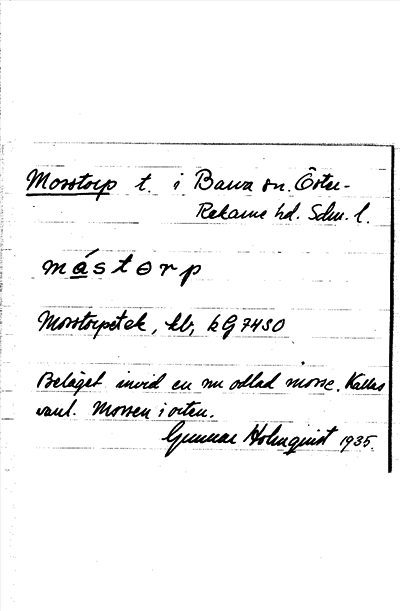 Mosstorp t. i Barva sn. Öster-
Rekarne hd. Södm. l.
måstɵrp
Mosstorpet ek, kb, kG 7430
Beläget invid en nu odlad mosse. Kallas
vanl. Mossen i orten.
Gunnar Holmquist 1935.